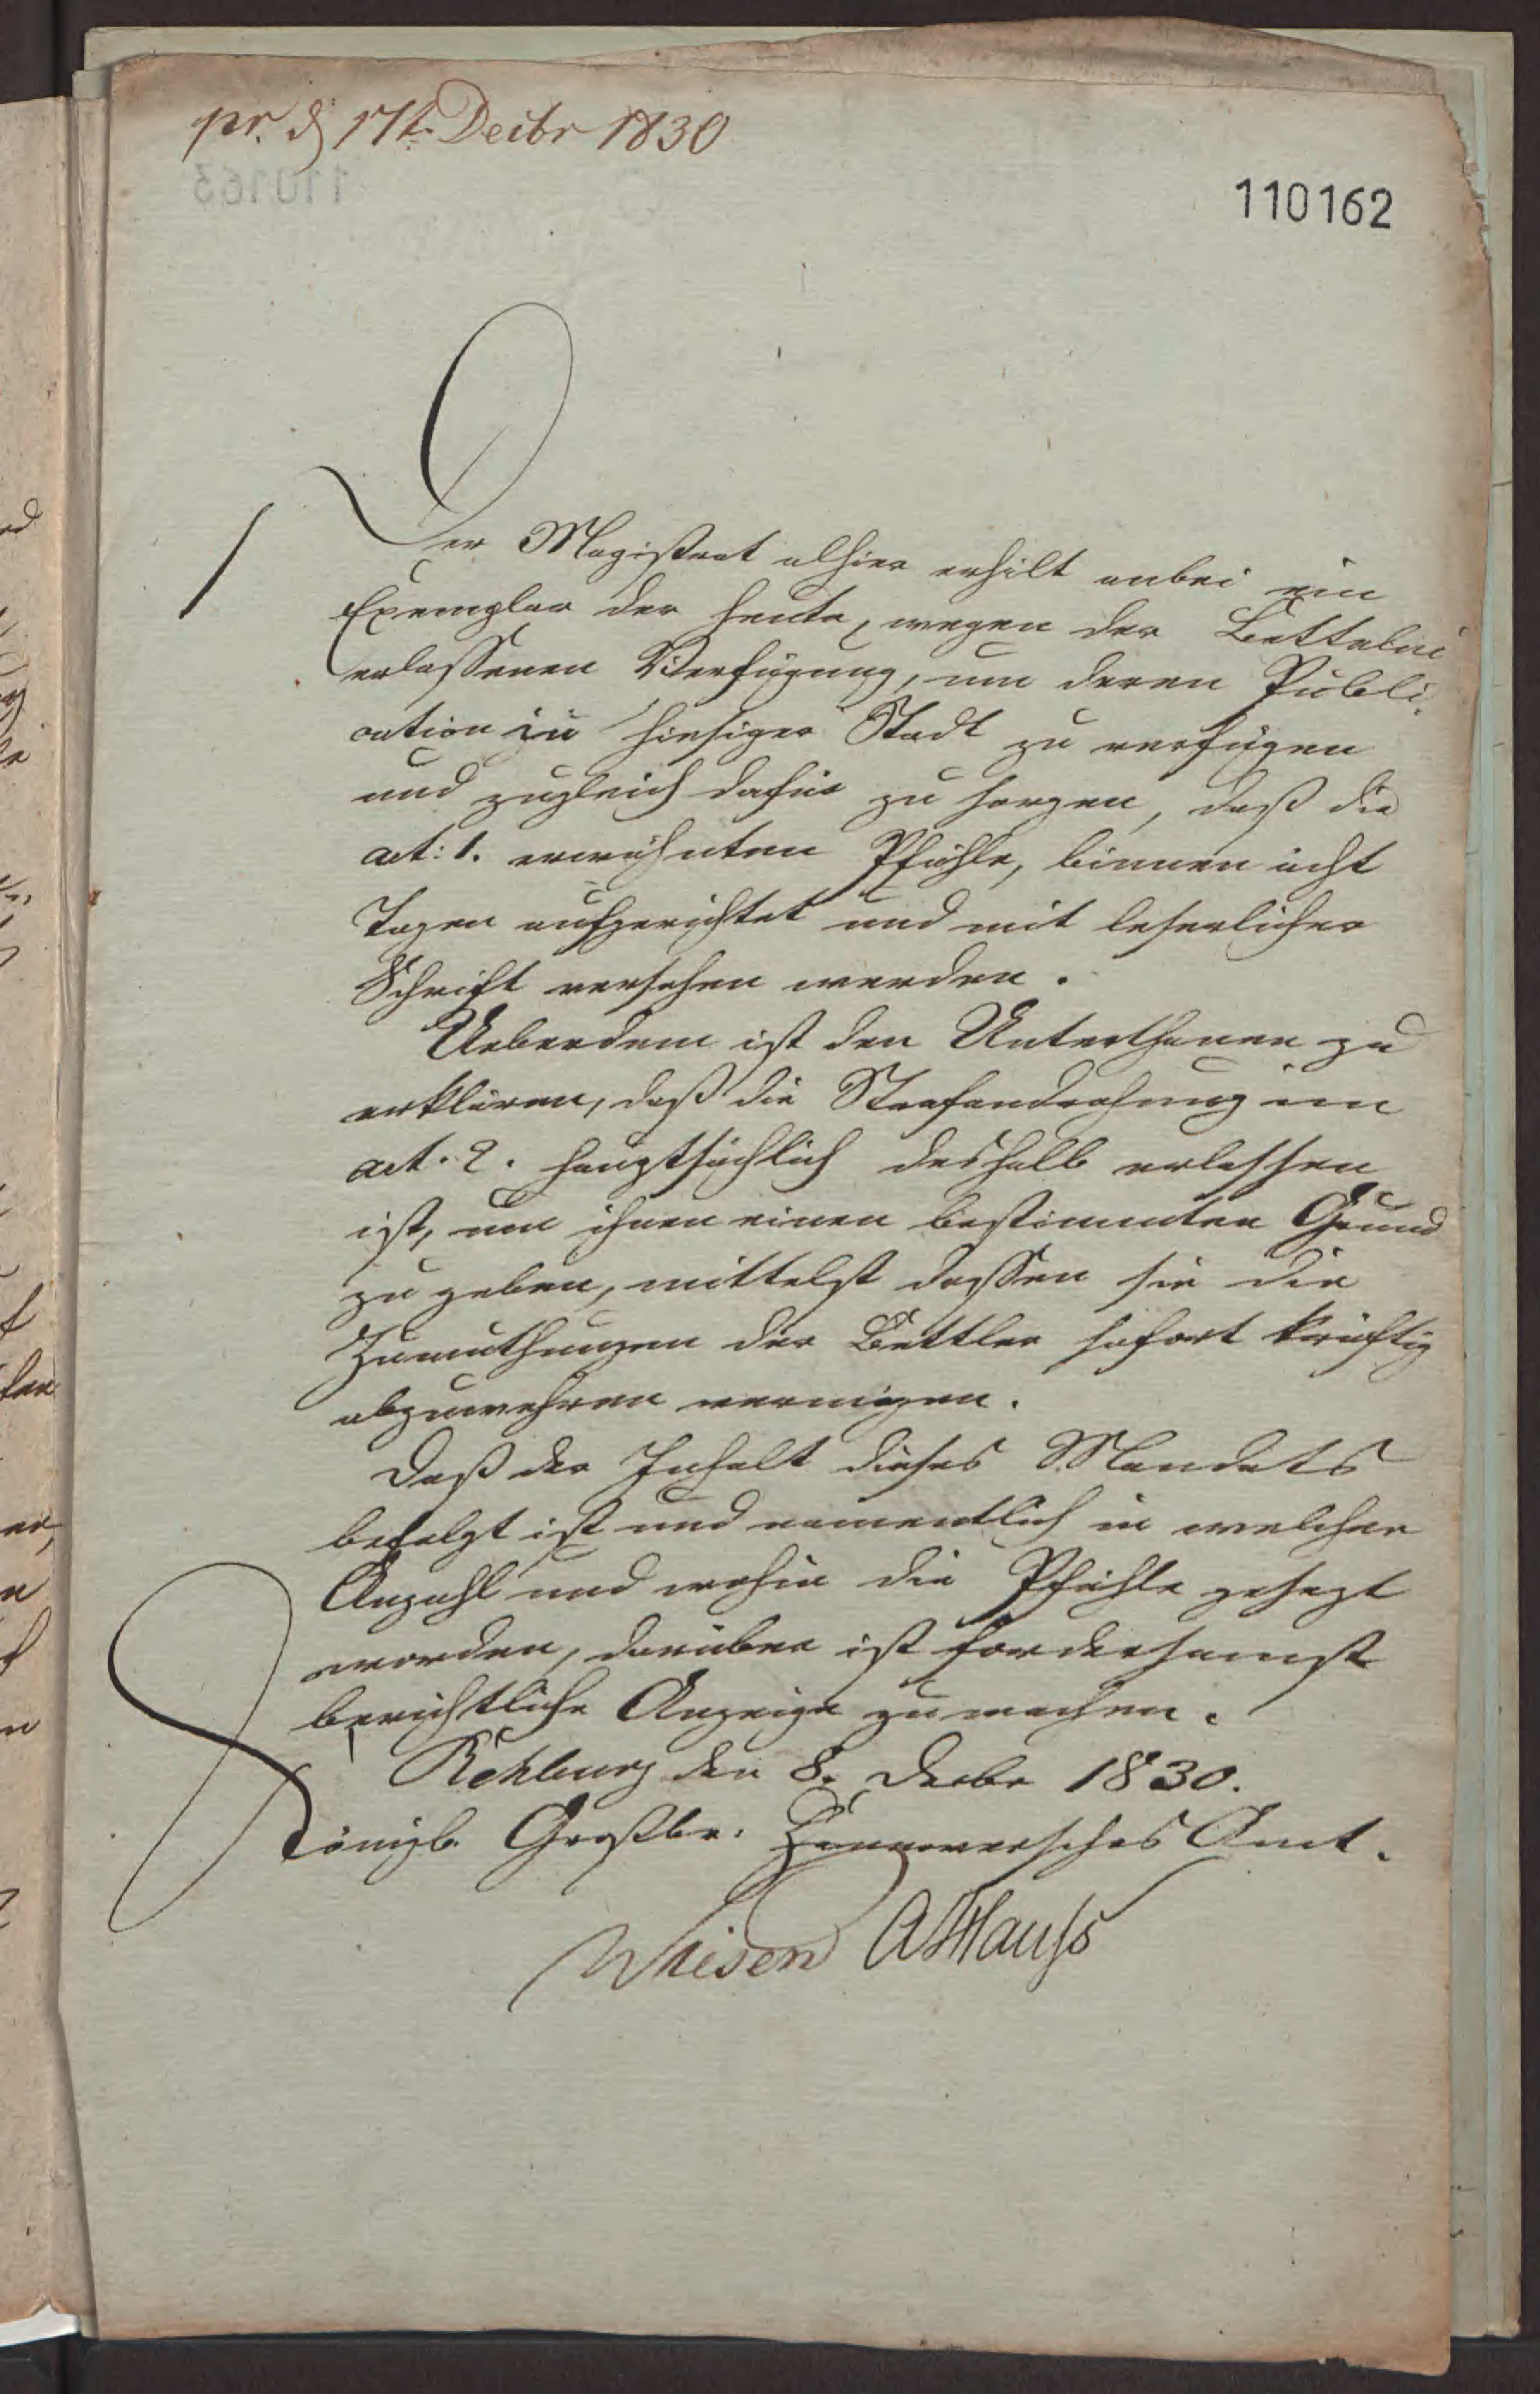 pr. d 17t. Decbr 1830
110162
Der Magistrat alhier erhält anbei ein
Exemplar der heute, wegen der Bettelei
erlassenen Verfügung, um deren Publi-
cation in hiesiger Stadt zu verfügen
und zugleich dafür zu sorgen, daß die
art: 1. erwähnten Pfähle, binnen acht
Tagen aufgerichtet und mit leserlicher
Schrift versehen werden.
Ueberdem ist den Unterthanen zu
erklären, daß die Strafandrohung im
art. 2. hauptsächlich deshalb erlassen
ist, um ihnen einen bestimmten Grund
zu geben, mittelst dessen sie die
Zumuthungen der Bettler sofort kräftig
abzuwehren vermögen.
Daß der Inhalt dieses Mandats
befolgt ist und namentlich in welcher
Anzahl und wohin die Pfähle gesezt
worden, darüber ist fordersamst
berichtliche Anzeige zu machen.
Rehburg den 8. Decbr 1830.
Königl. Großbr. Hannoversches Amt.